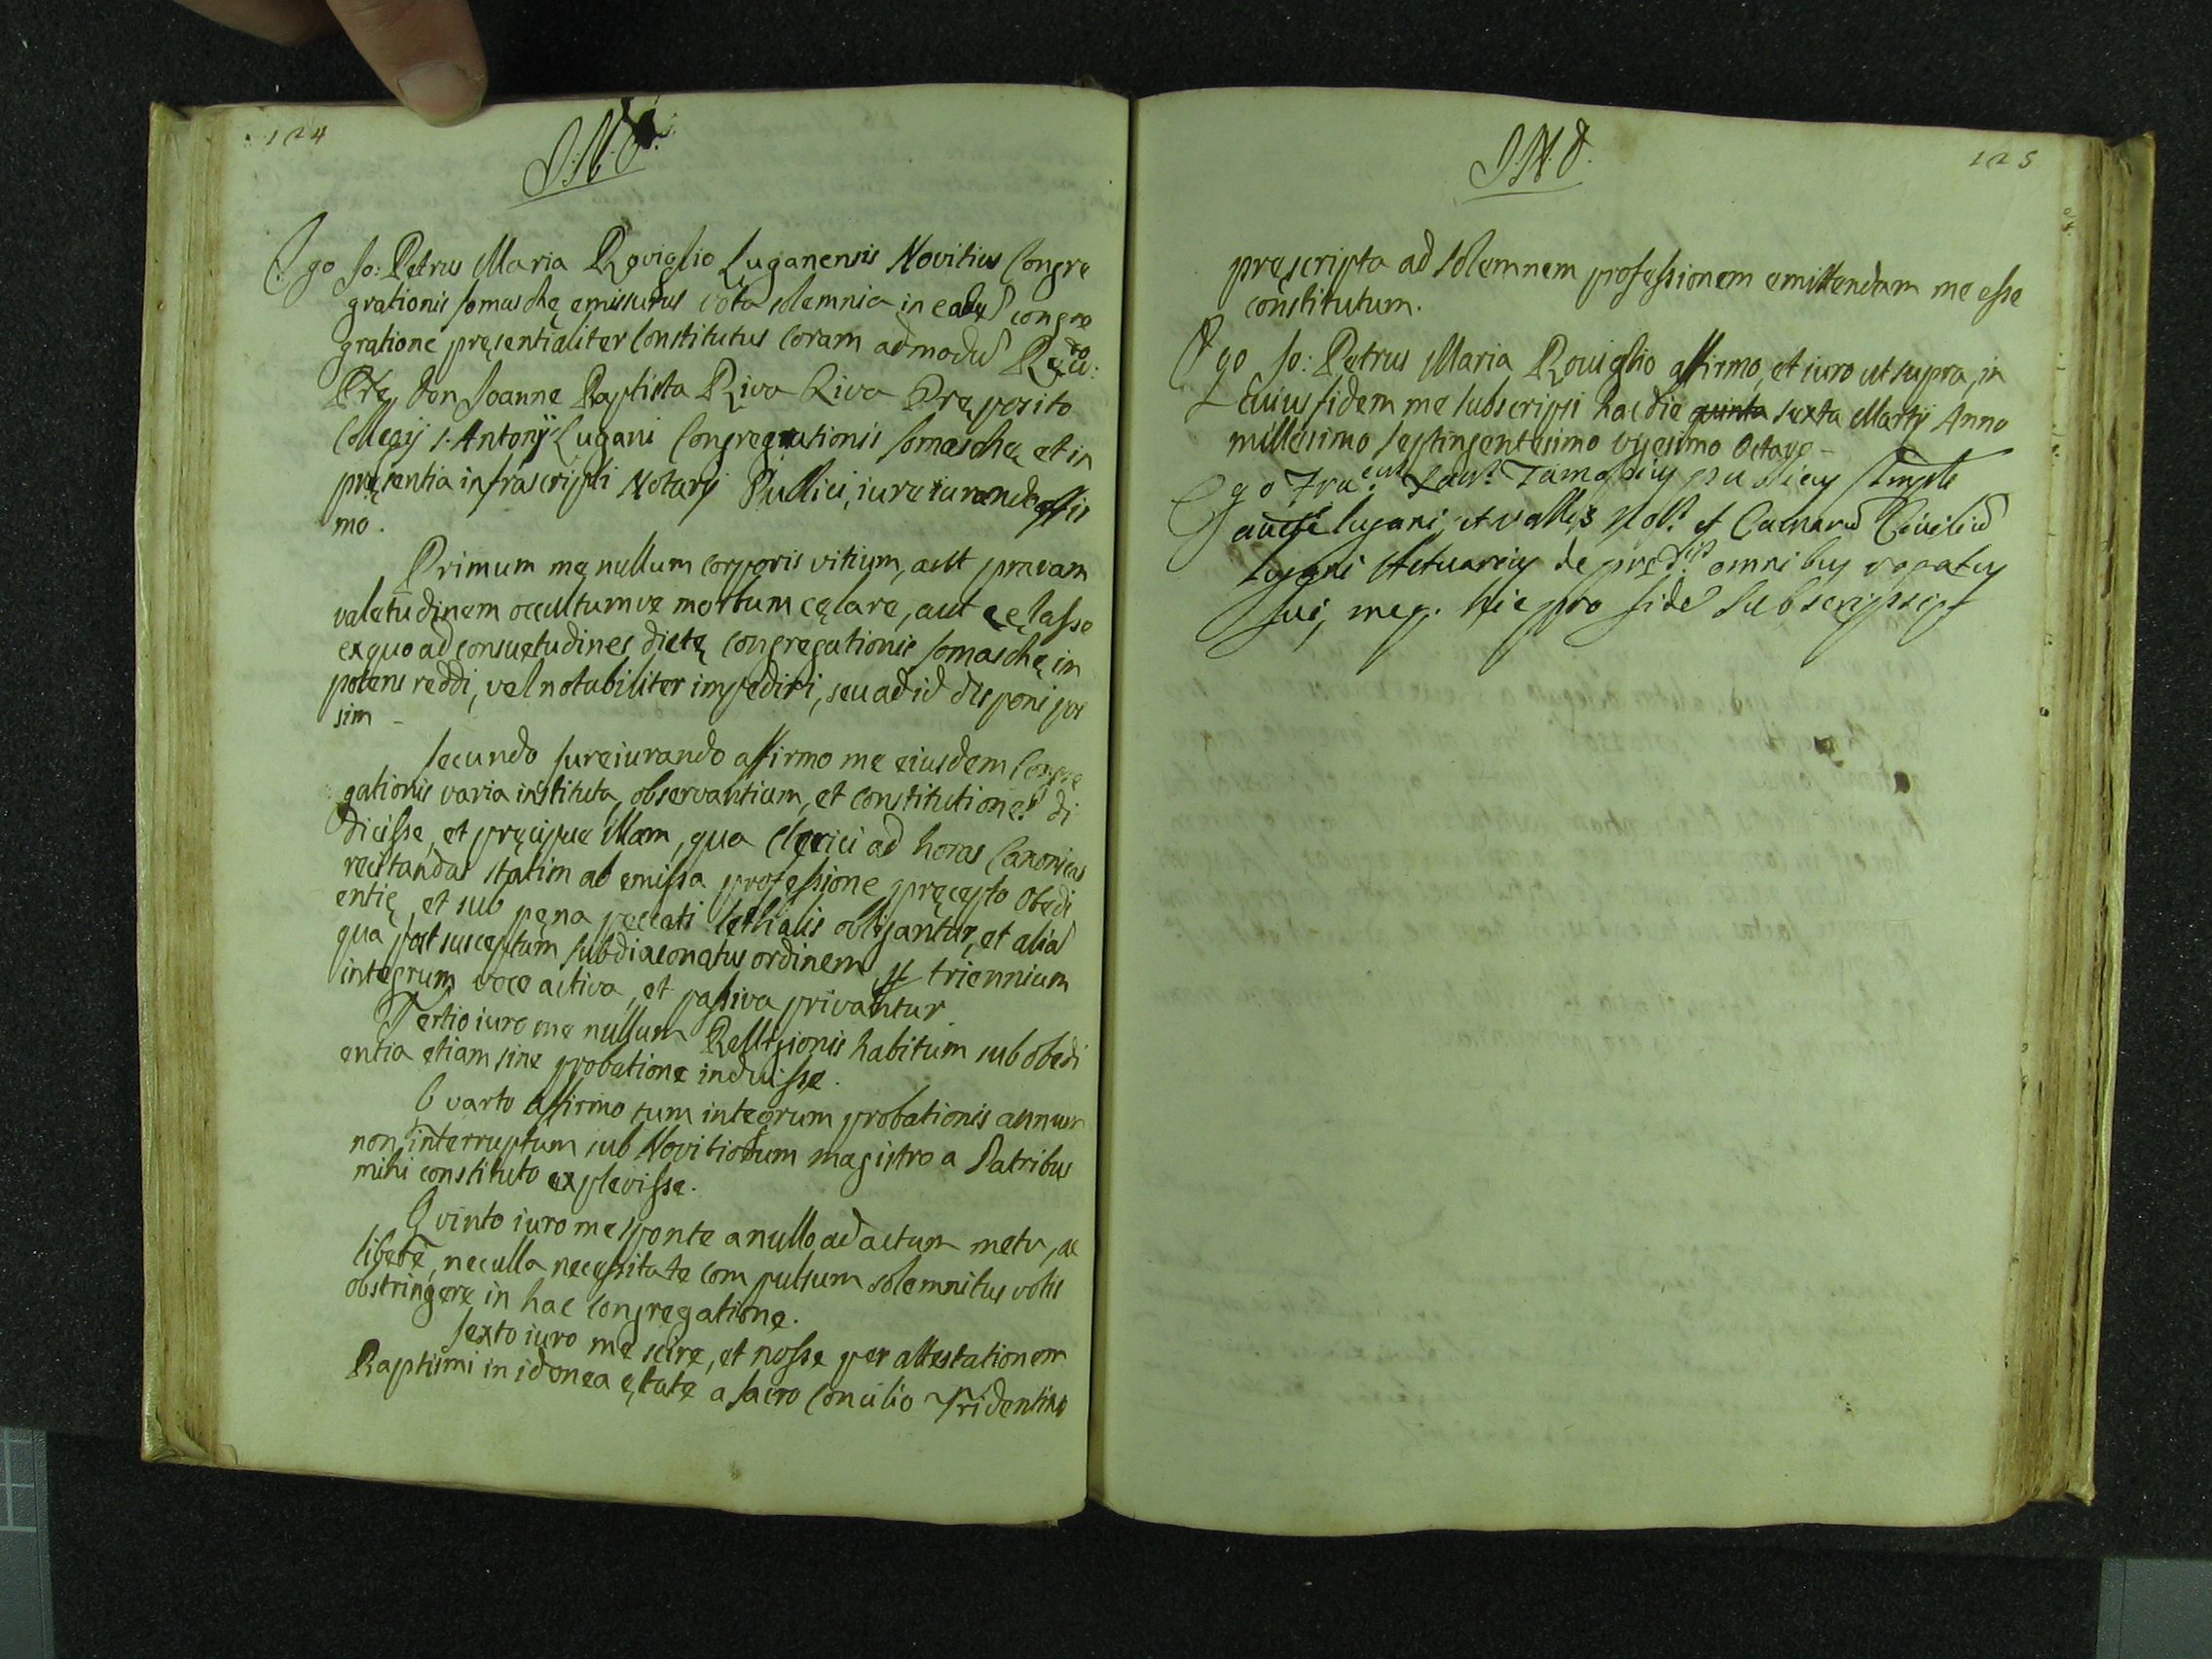 124
I. N. D.
Ego Jo: Petrus Maria Roviglio Luganensis Novitius Congre
grationis somaschę emissurus vota solemnia in eadē congre
gratione pręsentialiter Constitutus Coram admodū Rdo
Ptre Don Joanne Baptista Riva Riva Pręposito
Collegij S. Antonij Lugani Congregationis Somaschę et in
pręsentia infrascripti Notarij Publici, iure iurando affir
mo.
Primum me nullum corporis vitium, aut pravam
valetudinem occultumve morbum cęlare, aut cęlasse
ex quo ad consuetudines dictę congregationis somaschę im
potens reddi, vel notabiliter impediri, seu ad id disponi pos
sim -
secundo Jureiurando affirmo me eiusdem Congre
gationis varia instituta, observantium, et constitutiones di
dicisse, et pręcipue illam, qua Clerici ad horas Canonicas
recitandas statim ab emissa professione pręcepto Obedi
entię, et sub pęna peccati lethalis obligantur, et aliā
qua post susceptum subdiaconatus ordinem p triennium
integrum voce activa, et passiva privantur.
Tertio iuro me nullum Relligionis habitum sub obedi
entia etiam sine probatione induisse.
Quarto affirmo tum integrum probationis annum
non interruptum sub Novitiorum magistro a Patribus
mihi constituto explevisse.
Quinto iuro me sponte a nullo adactum metu, ac
liberè, nec ulla necessitate compulsum solemnitus votis
obstringere in hac Congregatione.
sexto iuro me scire, et nosse per attestationem
Baptismi in idonea ętate a sacro Concilio Tridentino
125
I. N. D.
prescripta ad solemnem professionem emittendam me esse
constitutum.
Ego Jo: Petrus Maria Roviglio affirmo, et iuro ut supra, in
Cuius fidem me subscripsi hac die quinta sexta Martij Anno
millesimo septingentesimo vigesimo Octavo -
Ego
lugani, et vallis et Civiliū
lugani Actuarius de omnibus rogatus
fui, hic pro fide subscripsi